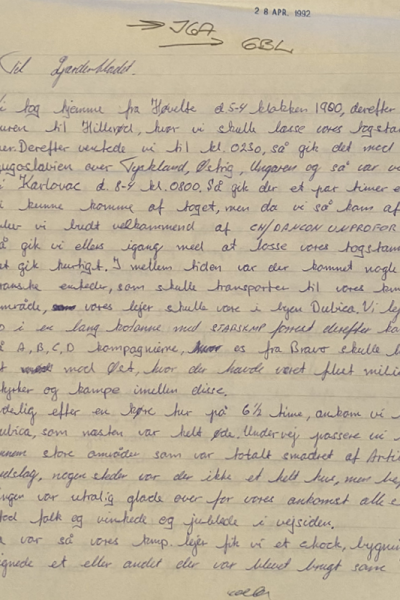 28 APR. 1992
→ IGA
→ GBL
Til Garderbladet.
Vi tog hjemme fra Høvelte d 5-4 klokken 1900, derefter
turen til Hillerød, hvor vi skulle losse vores togstam
mer. Derefter ventede vi til kl. 0230, så gik det mod
Jugoslavien over Tyskland, Østrig, Ungaren og så var vi
i Karlovac d. 8-4 kl. 0800. Så gik der et par timer
vi kunne komme af toget, men da vi så kom af
blev vi budt velkommend af CH/DANCON UNPROFOR
så gik vi ellers igang med at losse vores togstamm
det gik hurtigt. I mellem tiden var der kommet nogle
franske enheder, som skulle transporter til vores
område, vores lejer skulle være i byen Dubica. Vi
i en lang kolonne med STABSKMP forrest derefter
A, B, C, D kompagnierne, os fra Bravo skulle
mod Øst, hvor der havde været flest mili
styrker og kampe imellem disse.
Endelig efter en køre tur på 6½ time, ankom vi
Dubica, som næsten var helt øde. Undervej passere vi
store områder som var totalt smadret af Arti
nedslag, nogen steder var der ikke et helt hus, men
var utrolig glade over for vores ankomst alle
stod folk og vinkede og jublede i vejsiden.
var så vores kmp. lejer fik vi et chock, bygnin
lignede et eller andet der var blevet brugt som